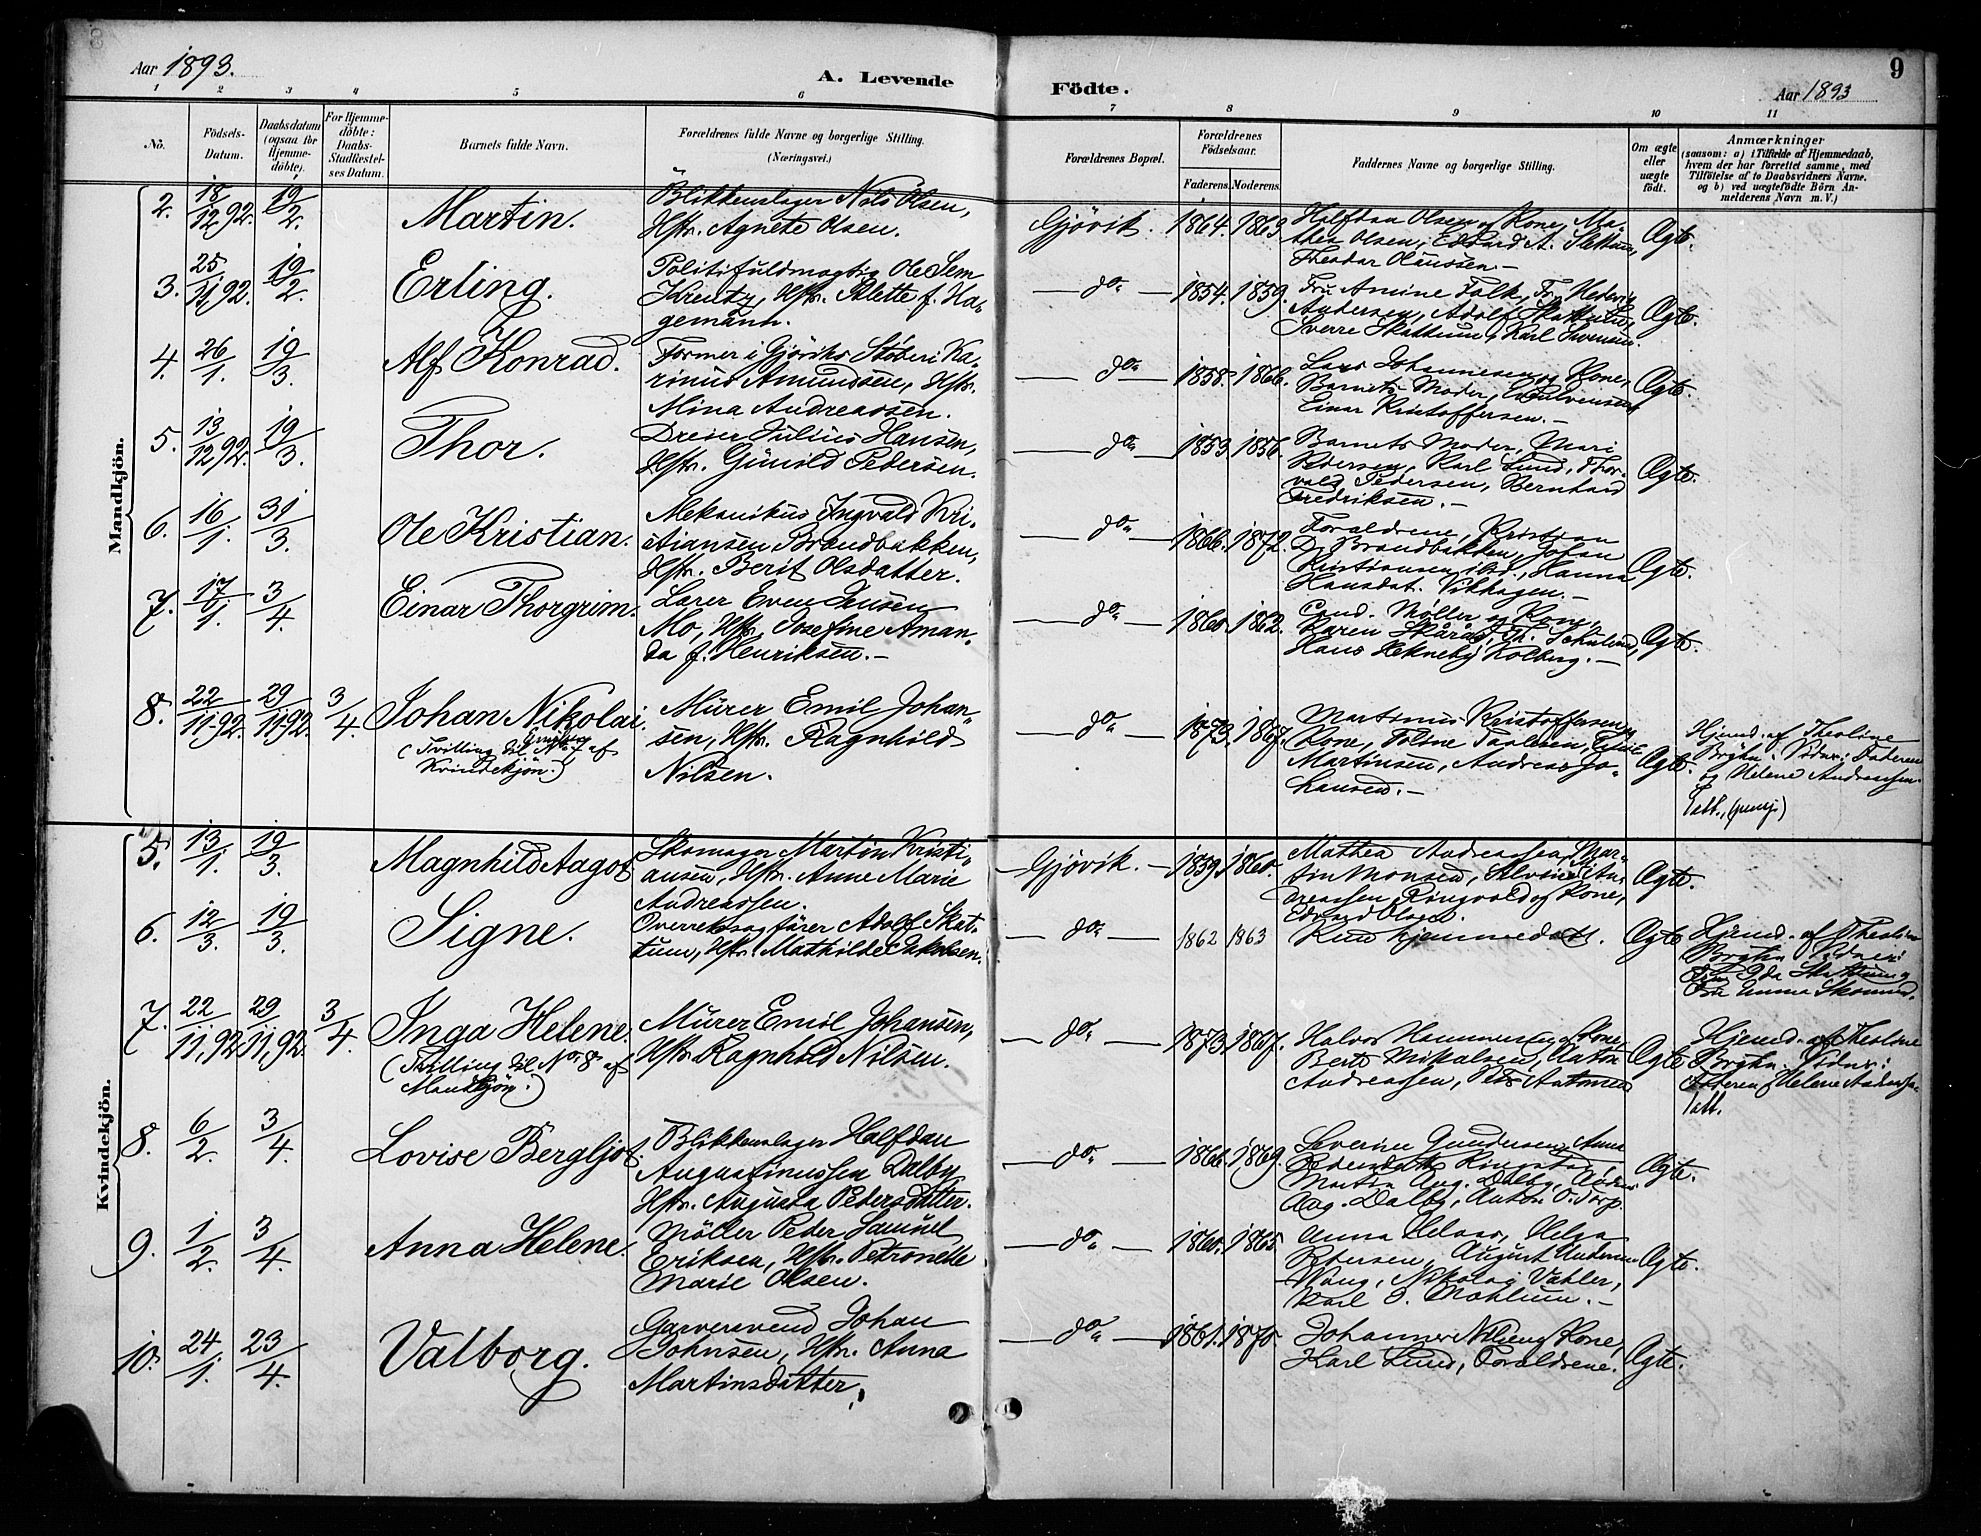 Aar 1893.
A. Levende
Födte.
9
Aar 1893
1 2 3 4 5 6 7 8 9 10 11
No.
Födsels-Datum.
Daabsdatum (ogsaa for Hjemme-döbte).
For Hjemme-döbte: Daabs-Stadfæstel-ses Datum.
Barnets fulde Navn.
Forældrenes fulde Navne og borgerlige Stilling. (Næringsvei.)
Forældrenes Bopæl.
Forældrenes Födselsaar.
Faderens. Moderens.
Faddernes Navne og borgerlige Stilling.
Om ægte eller uægte födt.
Anmærkninger
(saasom: a) i Tilfælde af Hjemmedaab,
hvem der har forrettet samme, med
Tilföielse af to Daabsvidners Navne,
og b) ved uægtefödte Börn An-
melderens Navn m. V.)
Mandkjön.
2. 18/12 92. 19/2. Martin.
Blikkenslager Nils Olsen,
Hstr. Agnete Olsen.
Gjövik. 1864. 1863
Halfdan Olsen og Kone, Ma-
thea Olsen, Edvard A. Slettum,
Theodor Olaussen.—
Ægte.
3. 25/11 92. 19/2. Erling.
Politifuldmægtig Ole Sem
Kreutz, Hstr. Alette f. Ha-
gemann.
do 1854. 1859.
Fru Amine Falk, Fr. Hedevig
Andersen, Adolf Skattum,
Sverre Skattum, Karl Svensen.
Ægte.
4. 26/1. 19/3 Alf Konrad.
Former i Gjöviks Støberi Ka-
rinus Amundsen, Hstr.
Mina Andreassen.
do 1858. 1866.
Lars Johannesen og Kone,
Barnets Moder,
Einar Kristoffersen.—
Ægte.
5. 13/12 92. 19/3. Thor.
Dreier Julius Hansen,
Hstr. Gunild Pedersen.
do 1853. 1856.
Barnets Moder, Mari
Pedersen, Karl Lund, Thor-
vald Pedersen, Bernhard
Fredriksen.—
Ægte.
6. 16/1. 31/3. Ole Kristian.
Mekanikus Ingvald Kri-
stiansen Brandbakken,
Hstr. Berit Olsdatter.
do 1866. 1872.
Forældrene, Kristian
D. Brandbakken, Johan
Kristiansen ibd., Hanna
Hansdat. Vikhagen.—
Ægte.
7. 17/1. 3/4. Einar Thorgrim.
Lærer Even Jensen
Mo, Hstr. Josefine Aman-
da f. Henriksen.—
do 1860. 1862.
Cand. Møller og Kone,
Karen Skårås, Th.
Hans Hekneby Kolberg.—
Ægte.
8. 22/11 92. 29/11 92. 3/4. Johan Nikolai.
(Tvilling til No 7 af
Kvindekjön.)
Murer Emil Johan-
sen, Hstr. Ragnhild
Nilsen.
do 1873. 1867.
Martinus Kristoffersen og
Kone, Toline Paulsen, Emil
Martinsen, Andreas Jo-
hansen.—
Ægte.
Hjemd. af Theoline
Brøhn. Vidner: Faderen
og Helene Andreassen
Kvindekjön.
5. 13/1. 19/3. Magnhild Aagot
Skomager Martin Kristi-
ansen, Hstr. Anne Marie
Andreassen.
Gjövik. 1859. 1860.
Mathea Andreassen, Mar-
tin Monsen, Alvine An-
dreassen Ringvold og Kone,
Edvard Olsen.
Ægte.
6. 12/3. 19/3. Signe.
Overretssagfører Adolf Skat-
tum, Hstr. Mathilde Jakobsen.
do 1862 1863
Kun hjemmedøbt.
Ægte
Hjemd. af Theoline
Brøhn. Vidner:
Ida Skattum og
Fru Emma
7. 22/11, 92 29/11, 92. 3/4. Inga Helene.
(Tvilling til No 8 af
Mandkjön.)
Murer Emil Johansen,
Hstr. Ragnhild Nilsen.
do 1873. 1867.
Halvor Hammersen og Kone,
Berte Mikalsen, Anton
Andreassen, Petr. Antonsen
Ægte
Hjemd. af Theoline
Brøhn. Vidner:
Faderen, Helene Andreasen
8. 6/2. 3/4. Lovise Bergljot.
Blikkenslager Halfdan
Augustinussen Dalby,
Hstr. Augusta Pedersdatter.
do 1866. 1869.
Severine Gundersen, Anna
Pedersdatt. Ringstad,
Martin Aug. Dalby,
Aug. Dalby, Anton O. Torp.
Ægte.
9. 1/2. 3/4. Anna Helene.
Møller Peder Samuel
Eriksen, Hstr. Petronelle
Marie Olsen.
do 1860. 1865.
Anna Helga
Petersen, August Andersen
Wang, Nikolai Vahler,
Karl O. Mæhlum.—
Ægte.
10. 24/1. 23/4. Valborg.
Garversvend Johan
Johnsen, Hstr. Anna
Martinsdatter.
do 1861. 1870.
Johannes Nilsen og Kone,
Karl Lund, Forældrene.
Ægte.